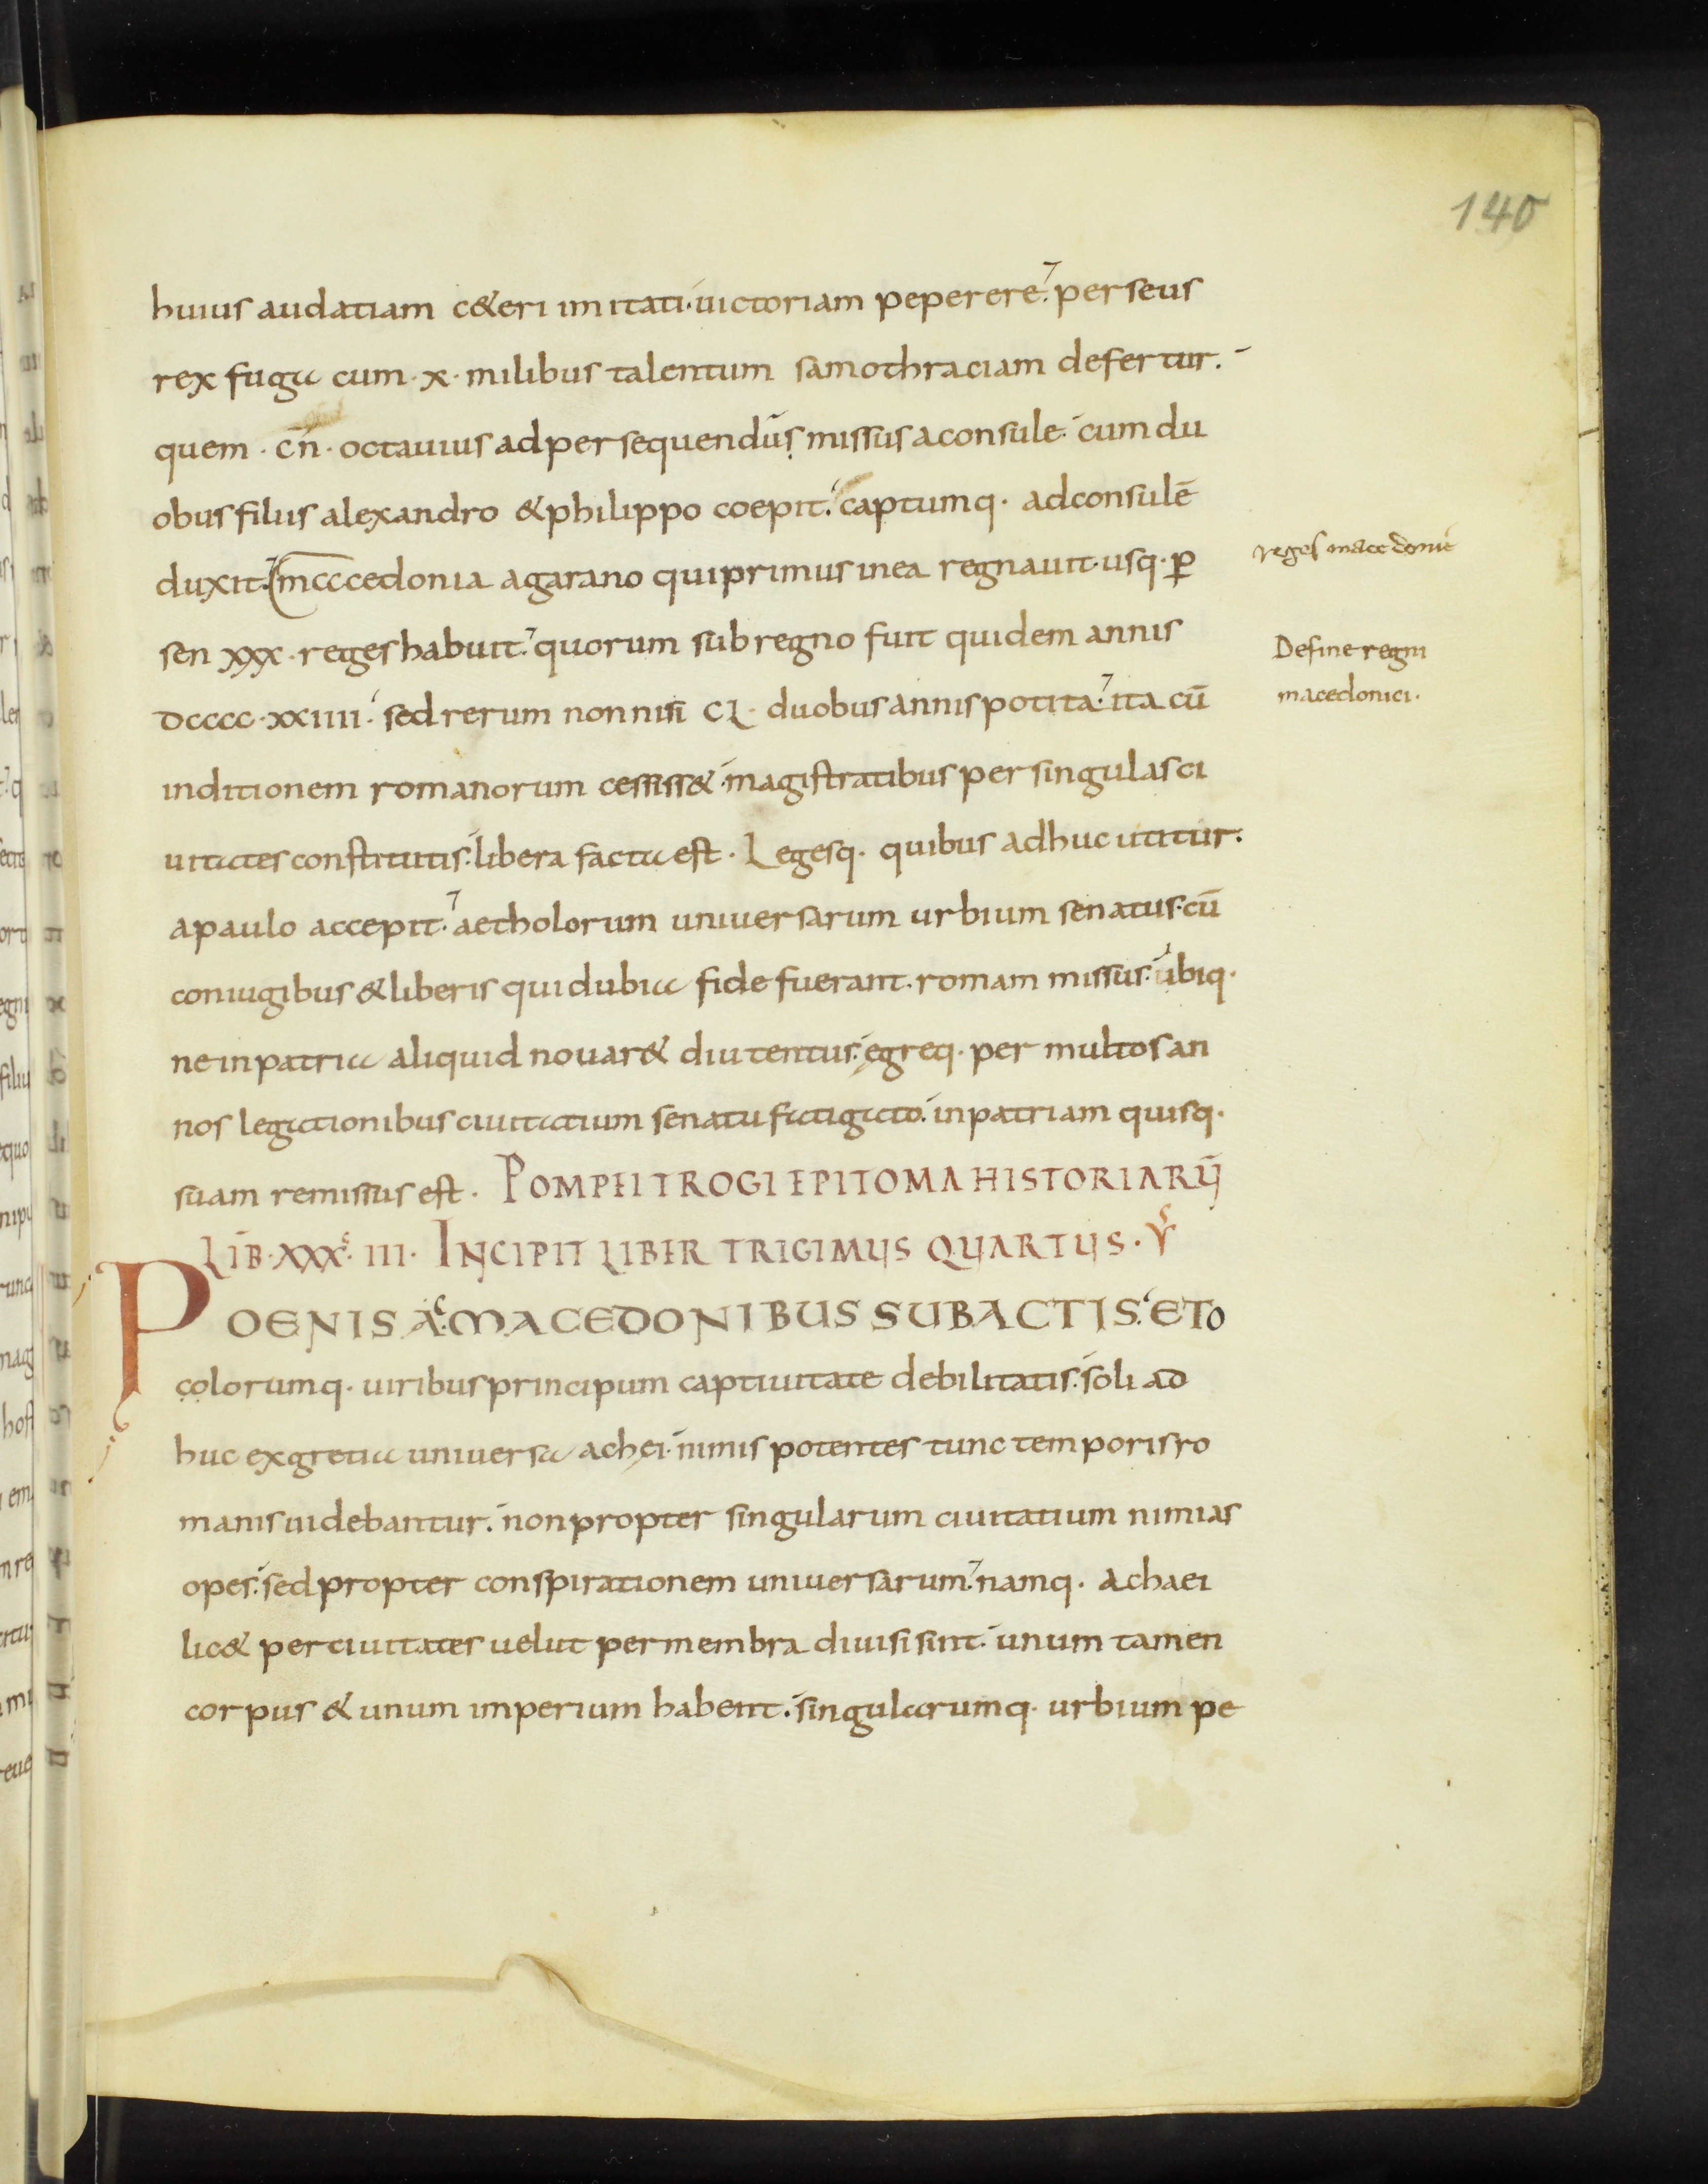 140
huius audatiam c&eri imitati· uictoriam peperere. perseus
rex fuga cum · x · milibus talentum samothraciam defertur.
quem · cn̄ · octauius ad persequendūs missus a consule. cum du
obus filius alexandro & philippo coepit. captumq· ad consulē
duxit. macedonia a garano qui primus in ea regnauit· usq· ꝑ
sen xxx · reges habuit. quorum sub regno fuit quidem annis
DCCCC · xxiiii. sed rerum non nisi CL · duobus annis potita. ita cū
in ditionem romanorum cessiss& · magistratibus per singulas ci
uitates constitutis. libera facta est · Legesq· quibus adhuc utitur.
a paulo accepit. aetholorum uniuersarum urbium senatus· cū
coniugibus & liberis qui dubia fide fuerant. romam missus. ubiq·
ne in patria aliquid nouar& diu tentus. ęgreq· per multos an
nos legationibus ciuitatium senatu fatigato. in patriam quisq·
suam remissus est · POMPEI TROGI EPITOMA HISTORIARŪ
LIB · XXX · III · INCIPIT LIBER TRIGIMUS QUARTUS ·
POENIS AC MACEDONIBUS SUBACTIS. ETO
colorumq· uiribus principum captiuitate debilitatis. soli ad
huc ex gretia uniuersa achęi · nimis potentes tunc temporis ro
manis uidebantur. non propter singularum ciuitatium nimias
opes. sed propter conspirationem uniuersarum. namq· Achaei
lic& per ciuitates uelut per membra diuisi sint. unum tamen
corpus & unum imperium habent. singularumq· urbium pe
reges macedonię
De fine regni
macedonici·